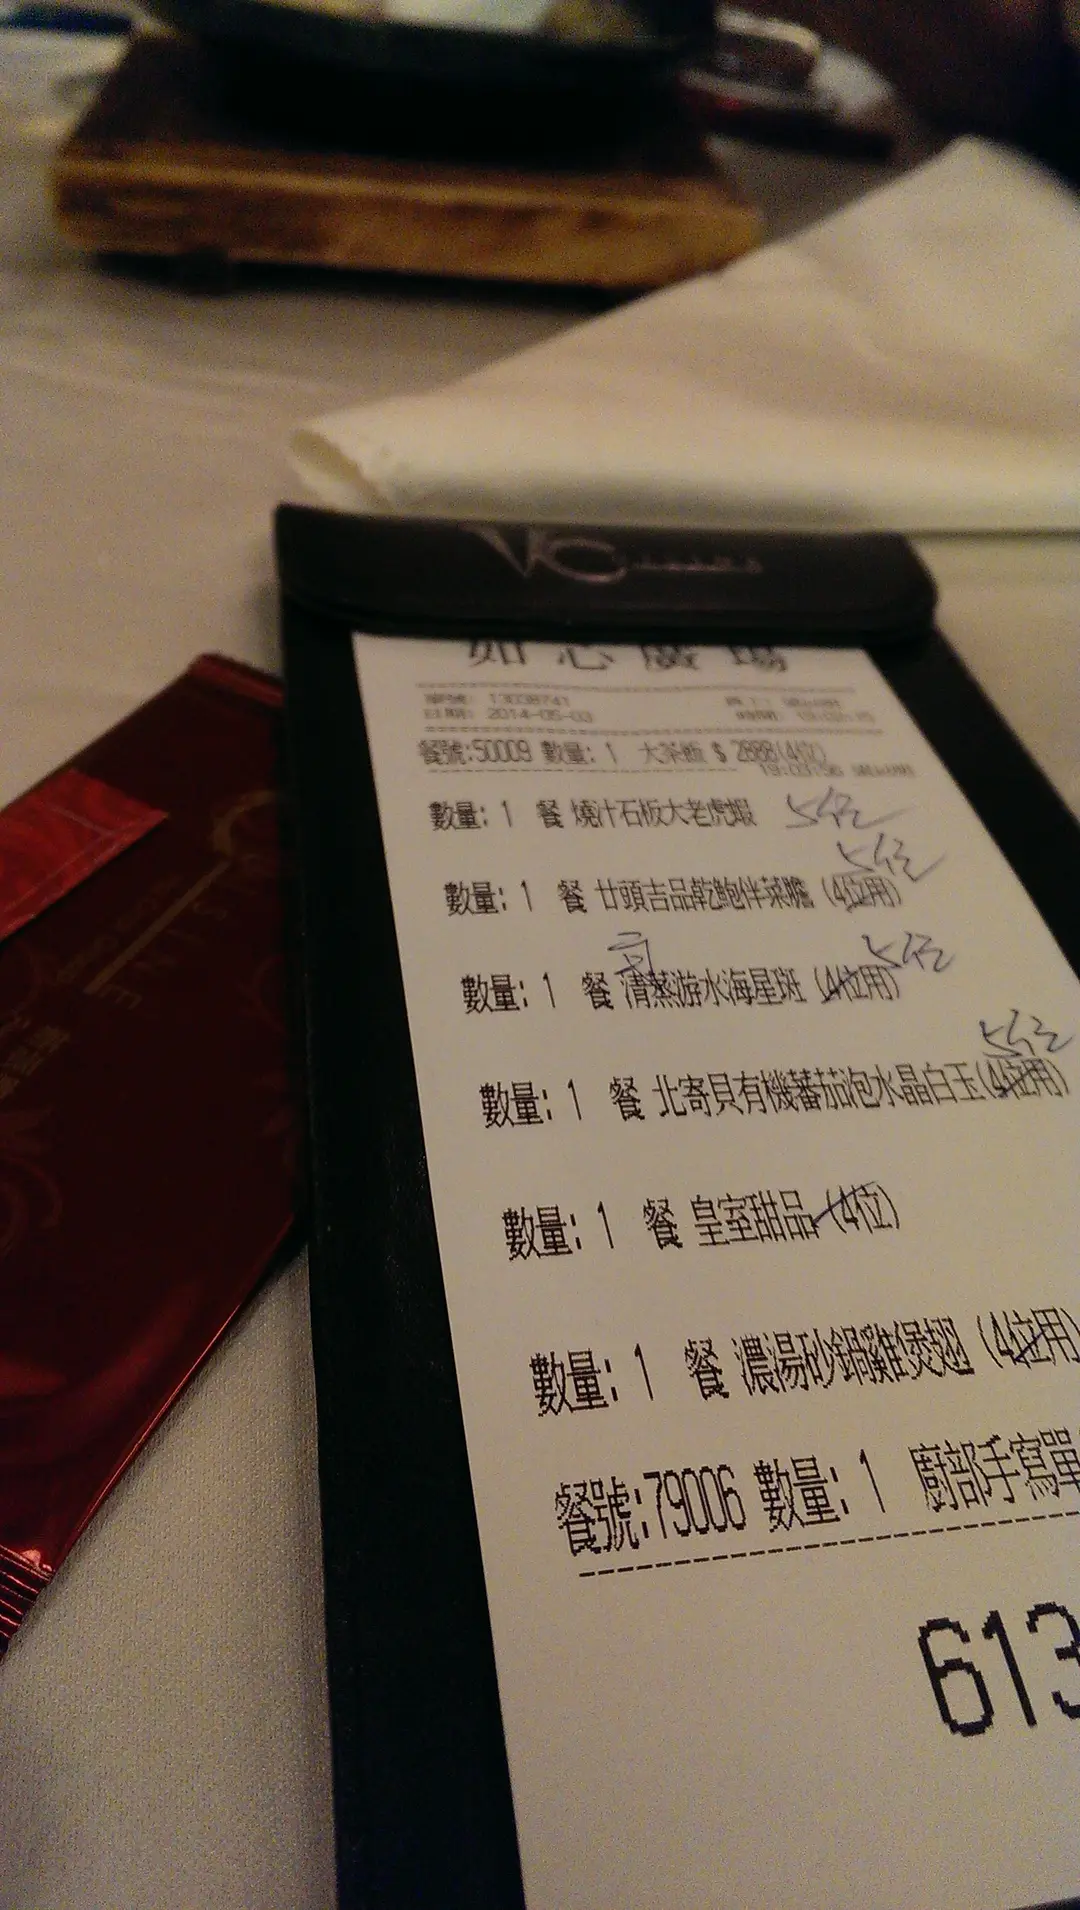 VC
如心廣場
單號: 13038741
日期: 2014-05-03
餐號:50009 數量: 1 大茶飯 $ 2888(4位)
19:03:56
數量: 1 餐 燒汁石板大老虎蝦 5位
5位
數量: 1 餐 廿頭吉品乾鮑伴菜膽 (4位用)
5位
數量: 1 餐 清蒸游水海星斑 (4位用)
5位
數量: 1 餐 北寄貝有機蕃茄泡水晶白玉(4位用)
數量: 1 餐 皇室甜品 (4位)
數量: 1 餐 濃湯砂鍋雞煲翅 (4位用)
餐號:79006 數量: 1 廚部手寫單
613